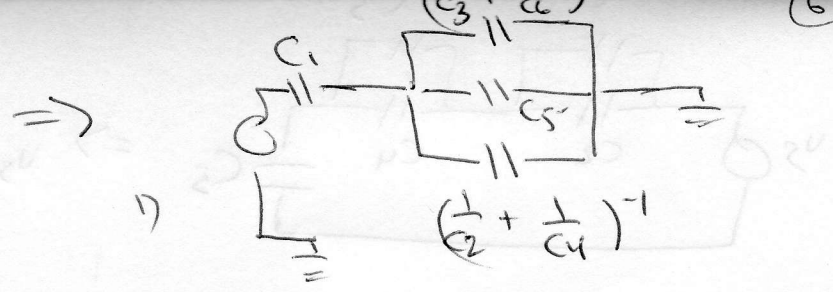 (C3 C6)
C1
=>
C5
1)
(1/C2 + 1/C4)^-1